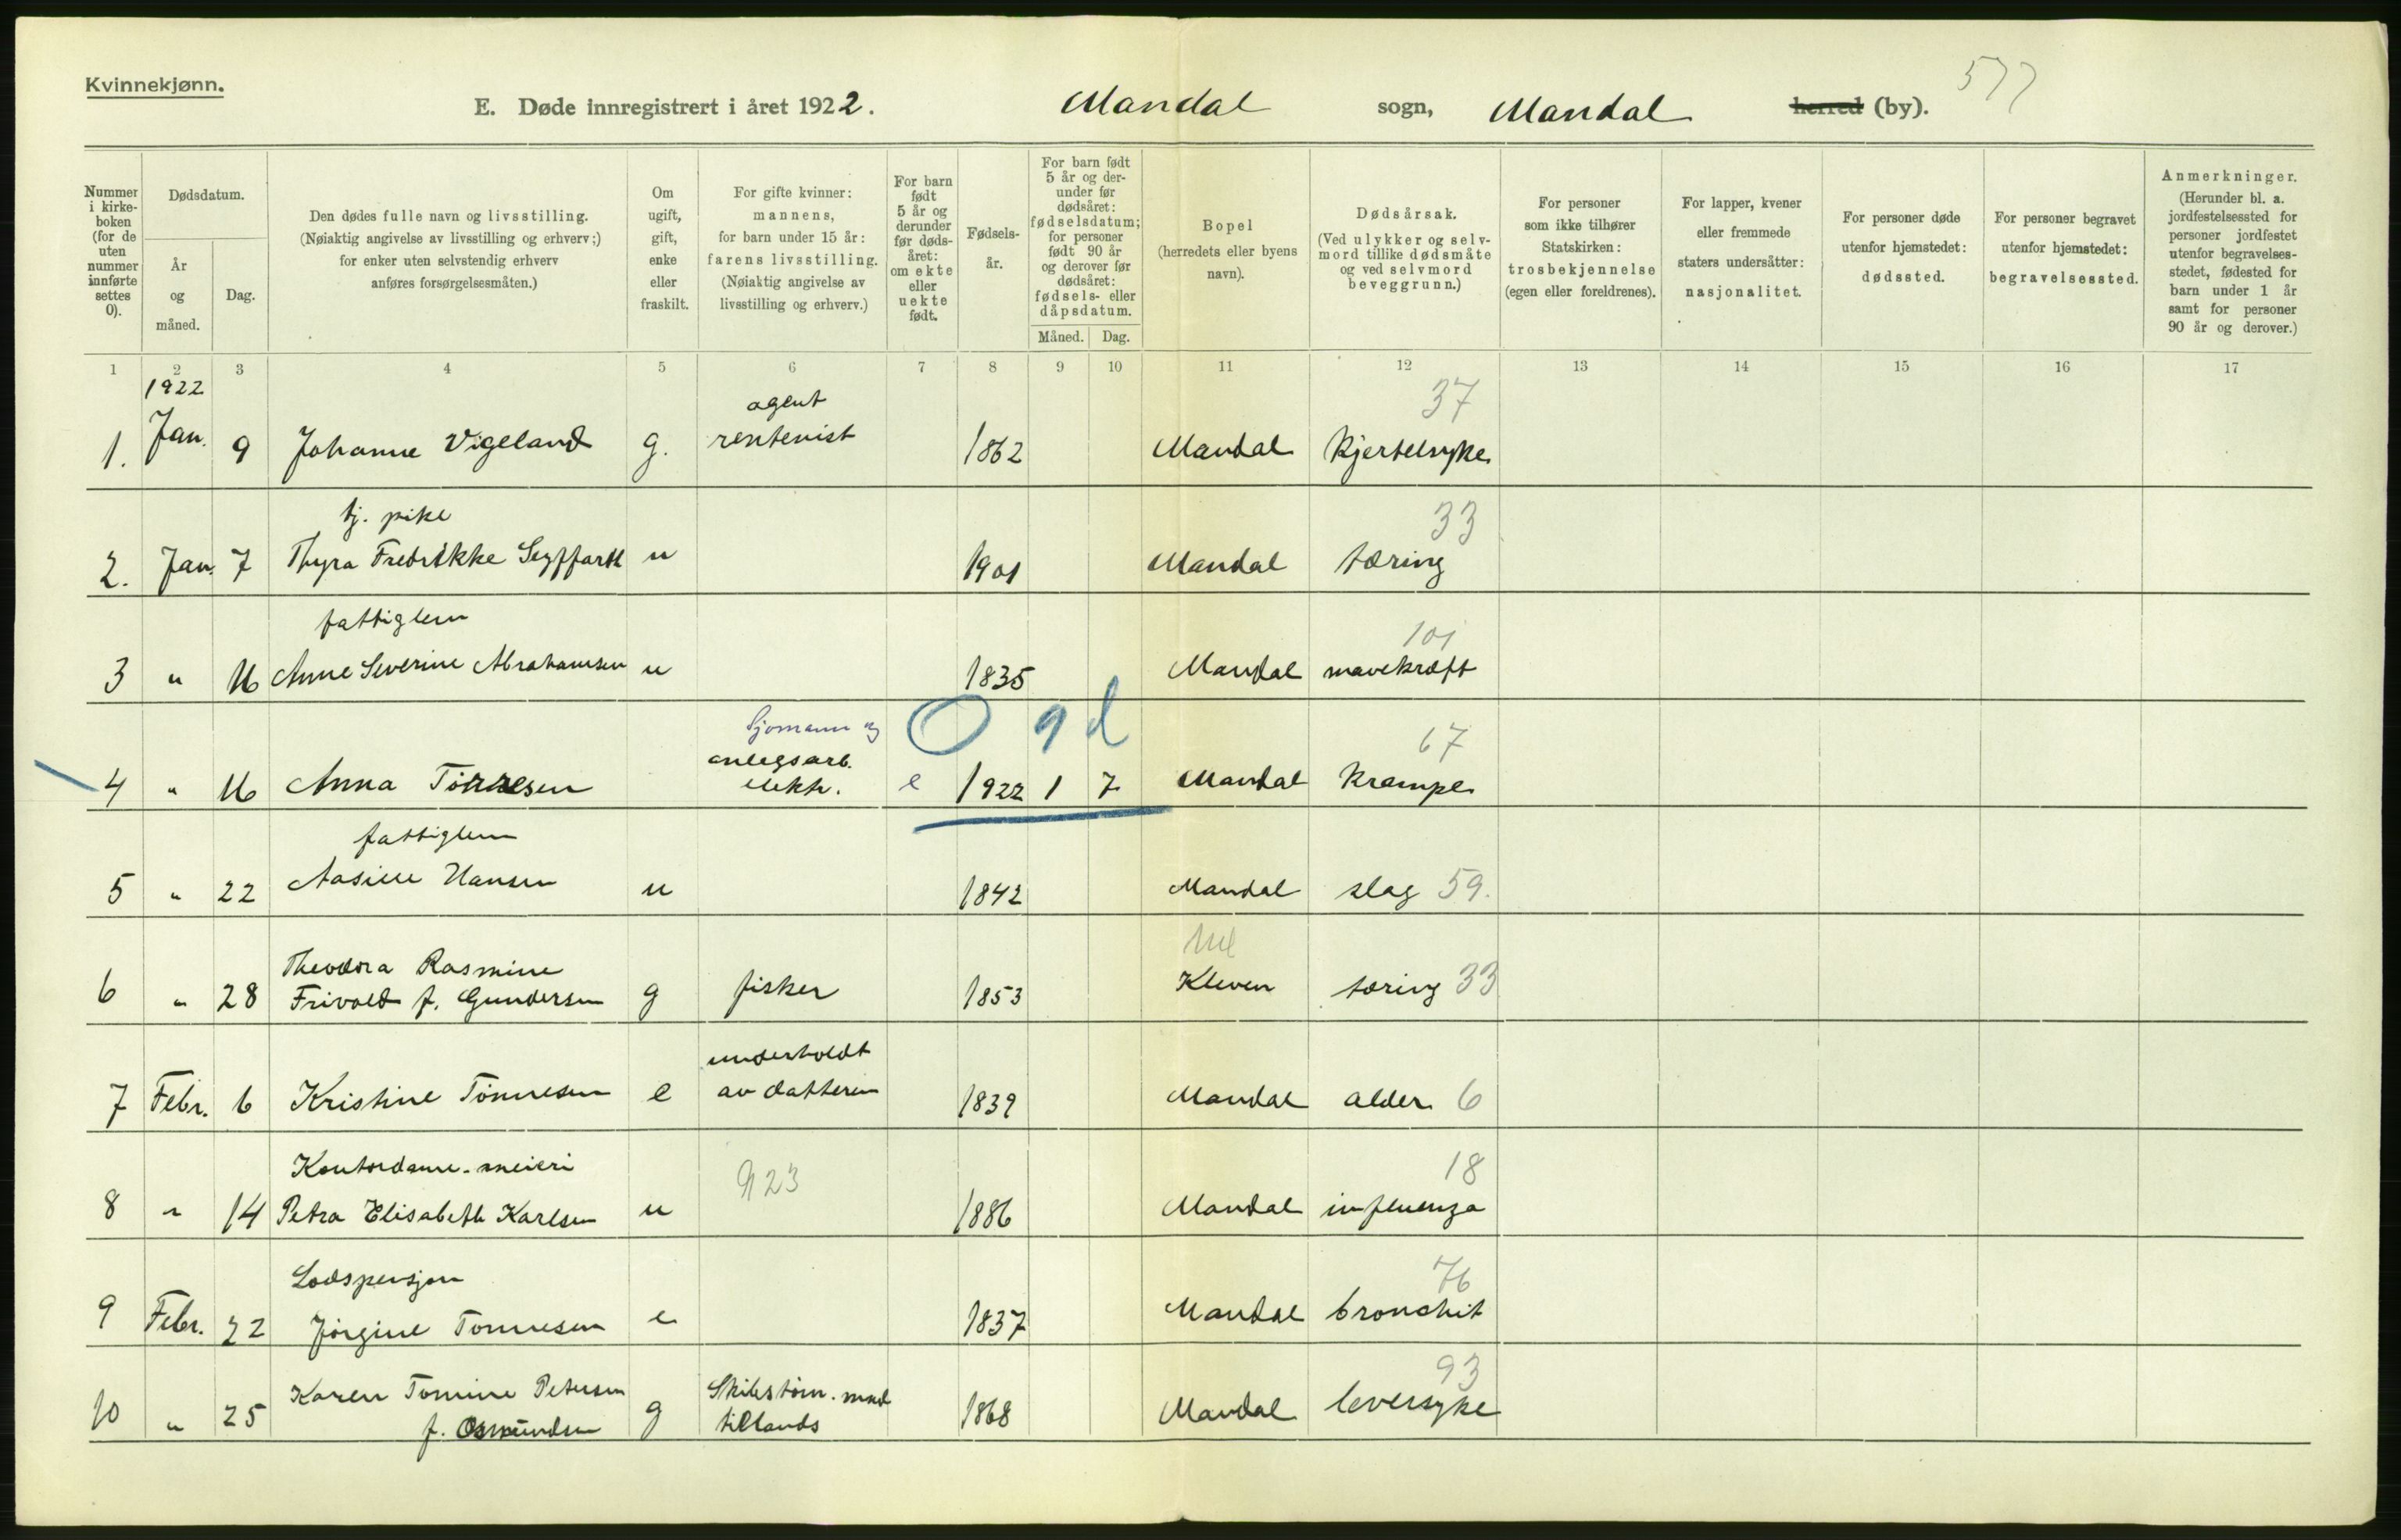 Kvinnekjønn.
E. Døde innregistrert i året 1922. Mandal sogn, Mandal herred (by). 577
Nummer i kirkeboken (for de uten nummer innførte settes 0).
Dødsdatum.
År og måned.
Dag.
Den dødes fulle navn og livsstilling. (Nøiaktig angivelse av livsstilling og erhverv;) for enker uten selvstendig erhverv anføres forsørgelsesmåten.)
Om ugift, gift, enke eller fraskilt.
For gifte kvinner: mannens, for barn under 15 år: farens livsstilling. (Nøiaktig angivelse av livsstilling og erhverv.)
For barn født 5 år og derunder før dødsåret: om ekte eller uekte født.
Fødselsår.
For barn født 5 år og derunder før dødsåret: fødselsdatum; for personer født 90 år og derover før dødsåret: fødsels- eller dåpsdatum.
Måned. Dag.
Bopel (herredets eller byens navn).
Dødsårsak. (Ved ulykker og selvmord tillike dødsmåte og ved selvmord beveggrunn.)
For personer som ikke tilhører Statskirken: trosbekjennelse (egen eller foreldrenes).
For lapper, kvener eller fremmede staters undersåtter: nasjonalitet.
For personer døde utenfor hjemstedet: dødssted.
For personer begravet utenfor hjemstedet: begravelsessted.
Anmerkninger. (Herunder bl. a. jordfestelsessted for personer jordfestet utenfor begravelsesstedet, fødested for barn under 1 år samt for personer 90 år og derover.)
1 2 3 4 5 6 7 8 9 10 11 12 13 14 15 16 17
1922
agent 37
1. Jan. 9 Johanne Vigeland g. rentenist 1862 Mandal Kjertelsyke
tj. pike 33
2. Jan. 7 Thyra Fredrikke Seyffarth u 1901 Mandal tæring
fattiglem 101
3 " 16 Anne Severine Abrahamsen u 1835 Mandal mavekræft
Sjomann og O 9 d 67
anlegsarb.
4 " 16 Anna Tönnesen elektr. e 1922 1 7 Mandal Krampe
fattiglem
5 " 22 Aasine Hansen u 1842 Mandal slag 59.
Theodora Rasmine
6 " 28 Frivold f. Gundersen g fisker 1853 Kleven tæring 33
underholdt
7 Febr. 6 Kristine Tönnesen e av datteren 1839 Mandal alder 6
Kontordame - meieri 923 18
8 " 14 Petra Elisabeth Karlsen u 1886 Mandal influenza
Lodspensjon 76
9 Febr. 22 Jörgine Tönnesen e 1837 Mandal bronchit
Karen Tomine Petersen 93
10 " 25 f. Osmundsen g tillands 1868 Mandal leversyke